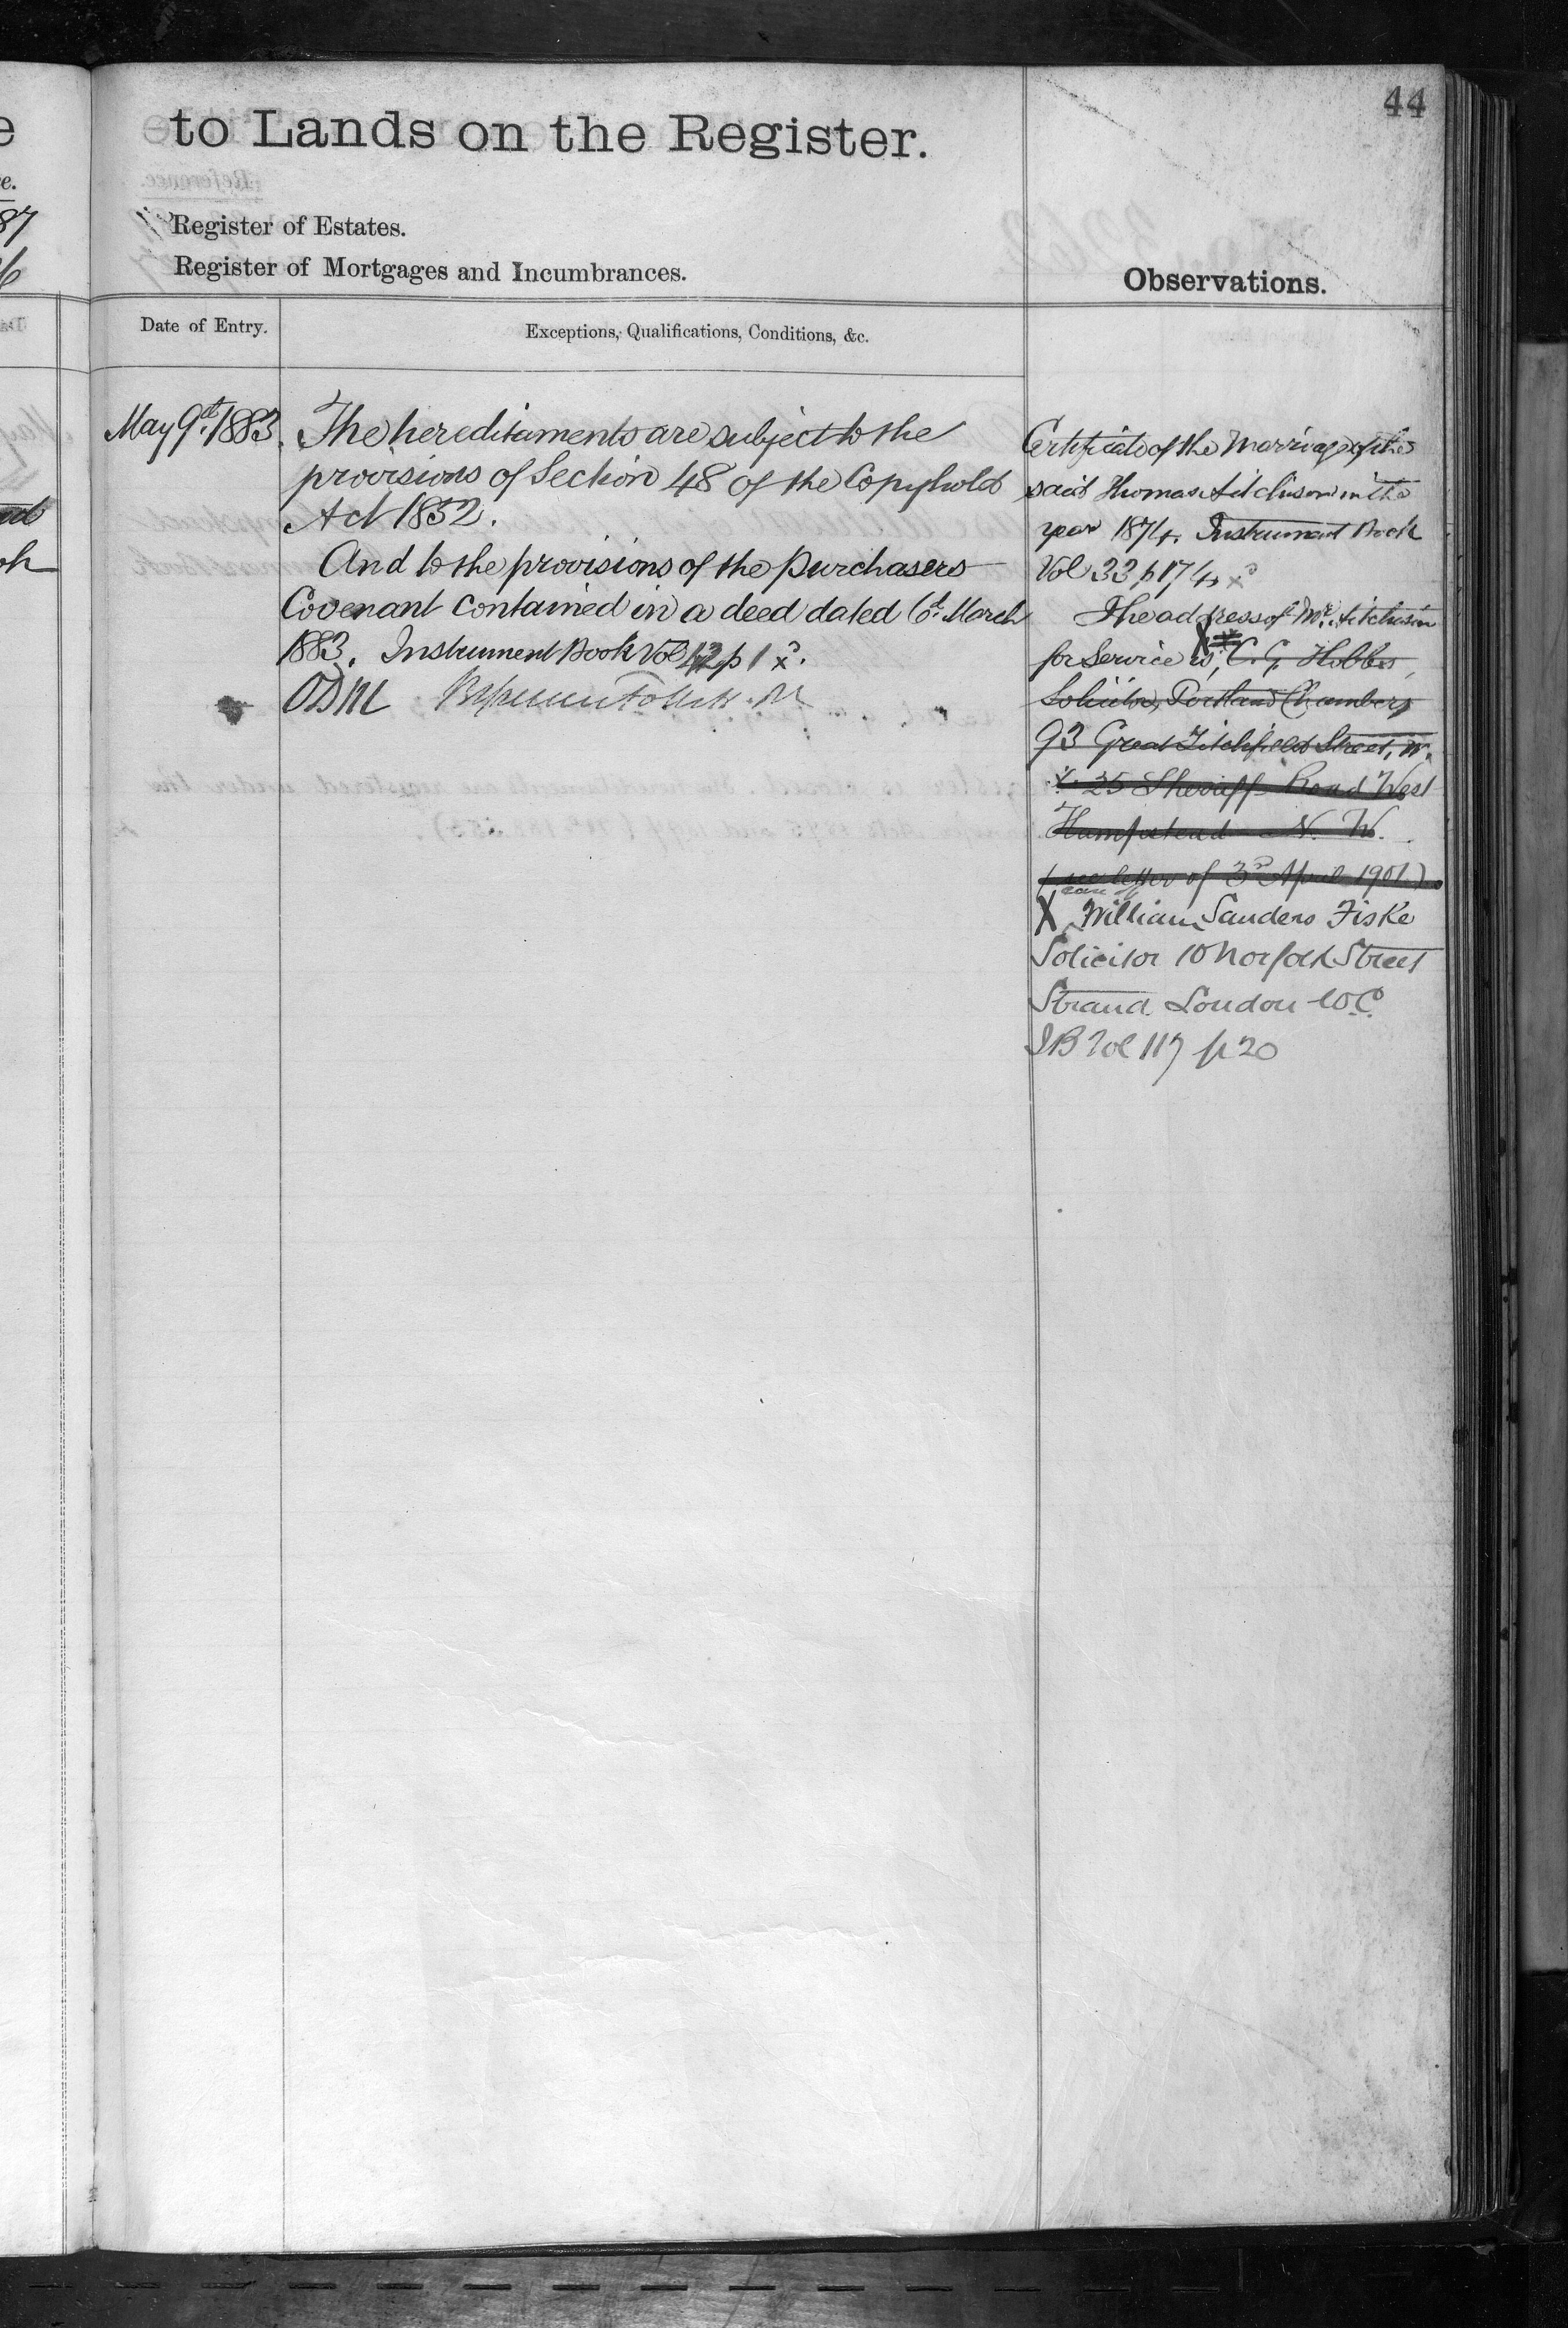 44
to Lands on the Register.
Register of Estates.
Register of Mortgages and Incumbrances.
Observations.
Date of Entry.
Exceptions, Qualifications, Conditions, &c.
May 9th 1883.
The hereditaments are subject to the
provisions of Section 48 of the Copyhold
Act 1852.
And to the provisions of the purchasers
Covenant contained in a deed dated 6th March
1883. Instrument Book Vol 42 p 1
ODM
Certificate of the Marriage of the
said Thomas Aitchison in the
year 1874. Instrument Book
Vol 33 p 174
The address of Mr. Aitchison
for Service is, C. G. Hobbs,
Solicitor, Portland Chambers
93 Great Titchfield Street, W.
X. 25 Sheriff Road West
Hampstead N. W.
(see letter of 3rd April 1901)
care of
X William Sanders Fiske
Solicitor 10 Norfolk Street
Strand London W.C.
IB Vol 117 p 20
e
e.
87